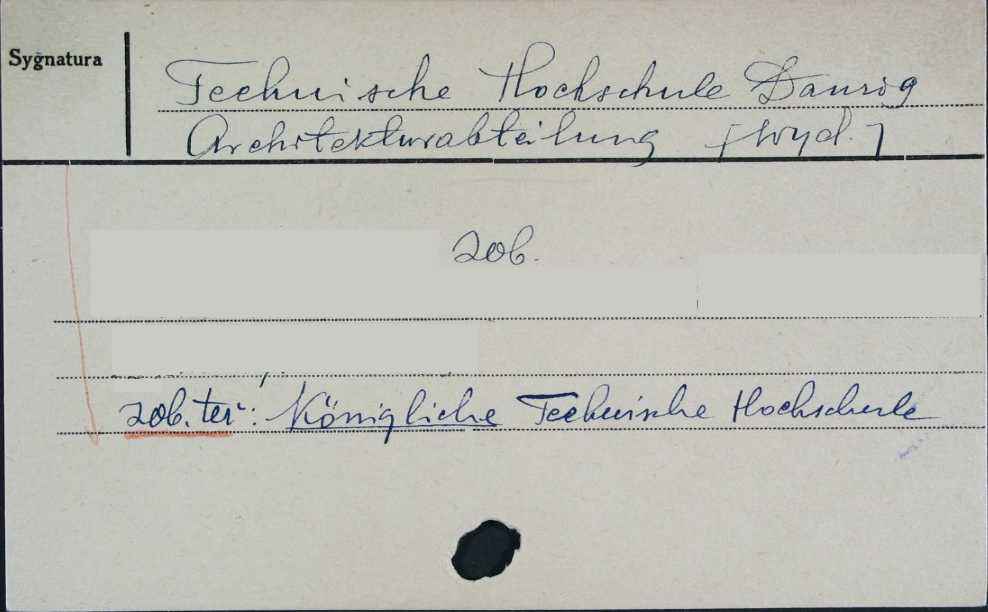 Sygnatura
Technische Hochschule Danzig
Architekturabteilung [wyd.]
zob.
zob. też: Königliche Technische Hochschule